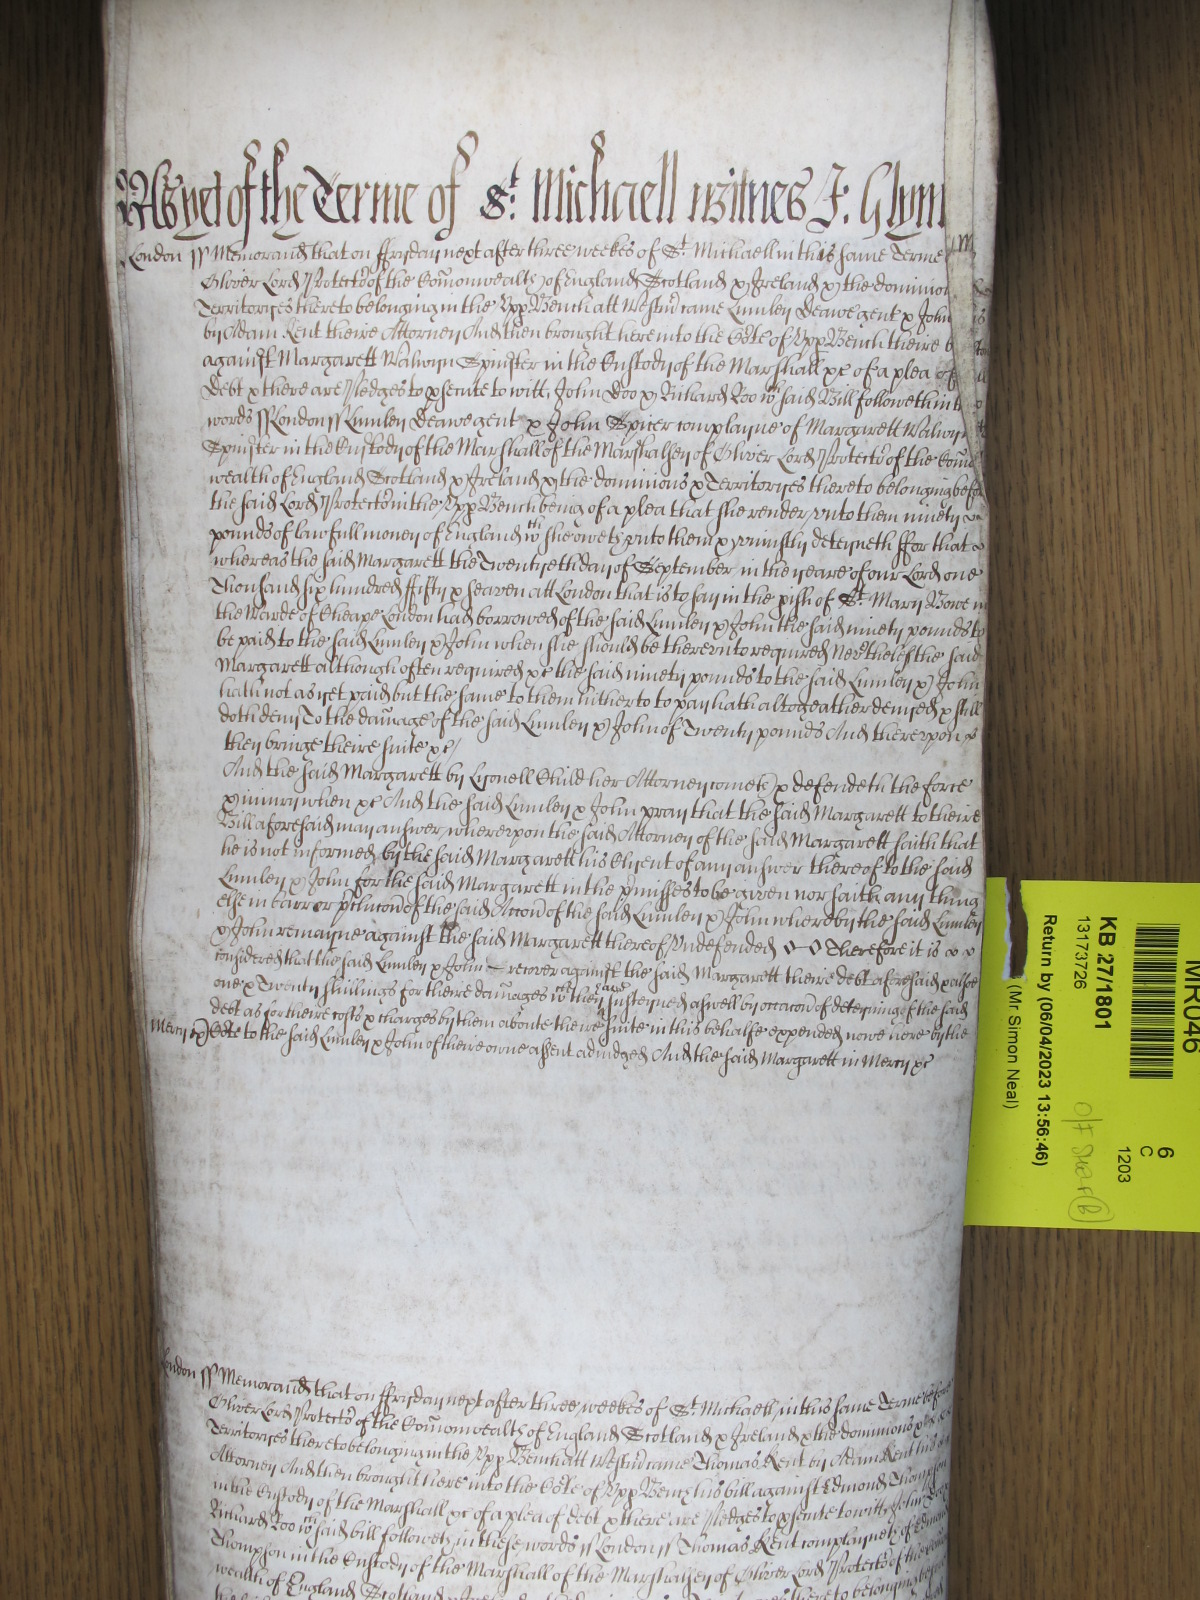 As yet of the Terme of St. Michaell witnes J: Glynn
London ss Memorand that on ffryday next after three weekes of St Michaell in this same Terme
Oliver Lord Protector of the Comonwealth of England Scotland & Ireland & the dominions
Territoryes thereto belonging in the Upp Bench att Westmr came Lumley Deawegent & John
by Adam Kent theire Attorney And then brought here into the Cote of Upp Bench theire
against Margarett Walwyn Spinster in the Custody of the Marshall &c of a plea of
Debt & there are Pledges to psecute to witt, John Doo & Richard Roo wch said Bill followeth in
words ss London ss Lumley Deawegent & John Spicer complayne of Margarett Walwyn
Spinster in the Custody of the Marshall of the Marshalsey of Oliver Lord Protector of the Comon
wealth of England Scotland & Ireland & the dominions & Territoryes thereto belonging before
the said Lord Protector in the Upp Bench being of a plea that she render unto them ninety
pounds of lawfull money of England wch she oweth unto them & uniustly deteyneth ffor that
whereas the said Margarett the Twentyeth day of September in the yeare of our Lord one
Thousand six hundred ffifty & seaven att London that is to say in the pish of St Mary Bowe in
the Warde of Cheape London had borrowed of the said Lumley & John the said ninety pounds to
be paid to the said Lumley & John when she should be thereunto required Nevertheles the said
Margarett although often required &c the said ninety pounds to the said Lumley & John
hath not as yet paid but the same to them hitherto to pay hath altogeather denyed & still
doth deny To the damage of the said Lumley & John of Twenty pounds And thereupon
they bringe theire suite &c
And the said Margarett by Lyonell Child her Attorney cometh & defendeth the force
& iniury when &c And the said Lumley & John pray that the said Margarett to theire
Bill aforesaid may answer, whereupon the said Attorney of the said Margarett saith that
he is not informed by the said Margarett his Clyent of any answer thereof to the said
Lumley & John for the said Margarett in the pmisses to be given nor saith any thing
else in barr or pclucon of the said Accon of the said Lumley & John whereby the said Lumley
& John remayne against the said Margarett thereof Undefended Therefore it is
considered that the said Lumley & John recover against the said Margarett theire debt aforesaid & alsoe
one & Twenty shillings for theire damages wch they have susteyned aswell by occacon of deteyning of the said
debt as for theire costs & charges by them aboute theire suite in this behalfe expended nowe here by the
Mercy Cote to the said Lumley & John of theire owne assent adiudged And the said Margarett in Mercy &c
London ss Memorand that on ffryday next after three weekes of St Michaell, in this same Terme before
Oliver Lord Protector of the Comonwealth of England Scotland & Ireland & the dominions &
Territoryes thereto belonging in the Upp Bench att Westmr came Thomas Kent by Adam Kent his
Attorney And then brought here into the Cote of Upp Bench his bill against Edmond Thompson
in the Custody of the Marshall &c of a plea of debt & there are Pledges to psecute to witt, John Doo
Richard Roo wch said bill followeth in these words ss London ss Thomas Kent complayneth of Edmond
Thompson in the Custody of the Marshall of the Marshalsey of Oliver Lord Protector of the
wealth of England Scotland & Ireland to belonging before
MR046
KB 27/1801
13173726
Return by (06/04/2023 13:56:46)
(Mr Simon Neal)
6
C
1203